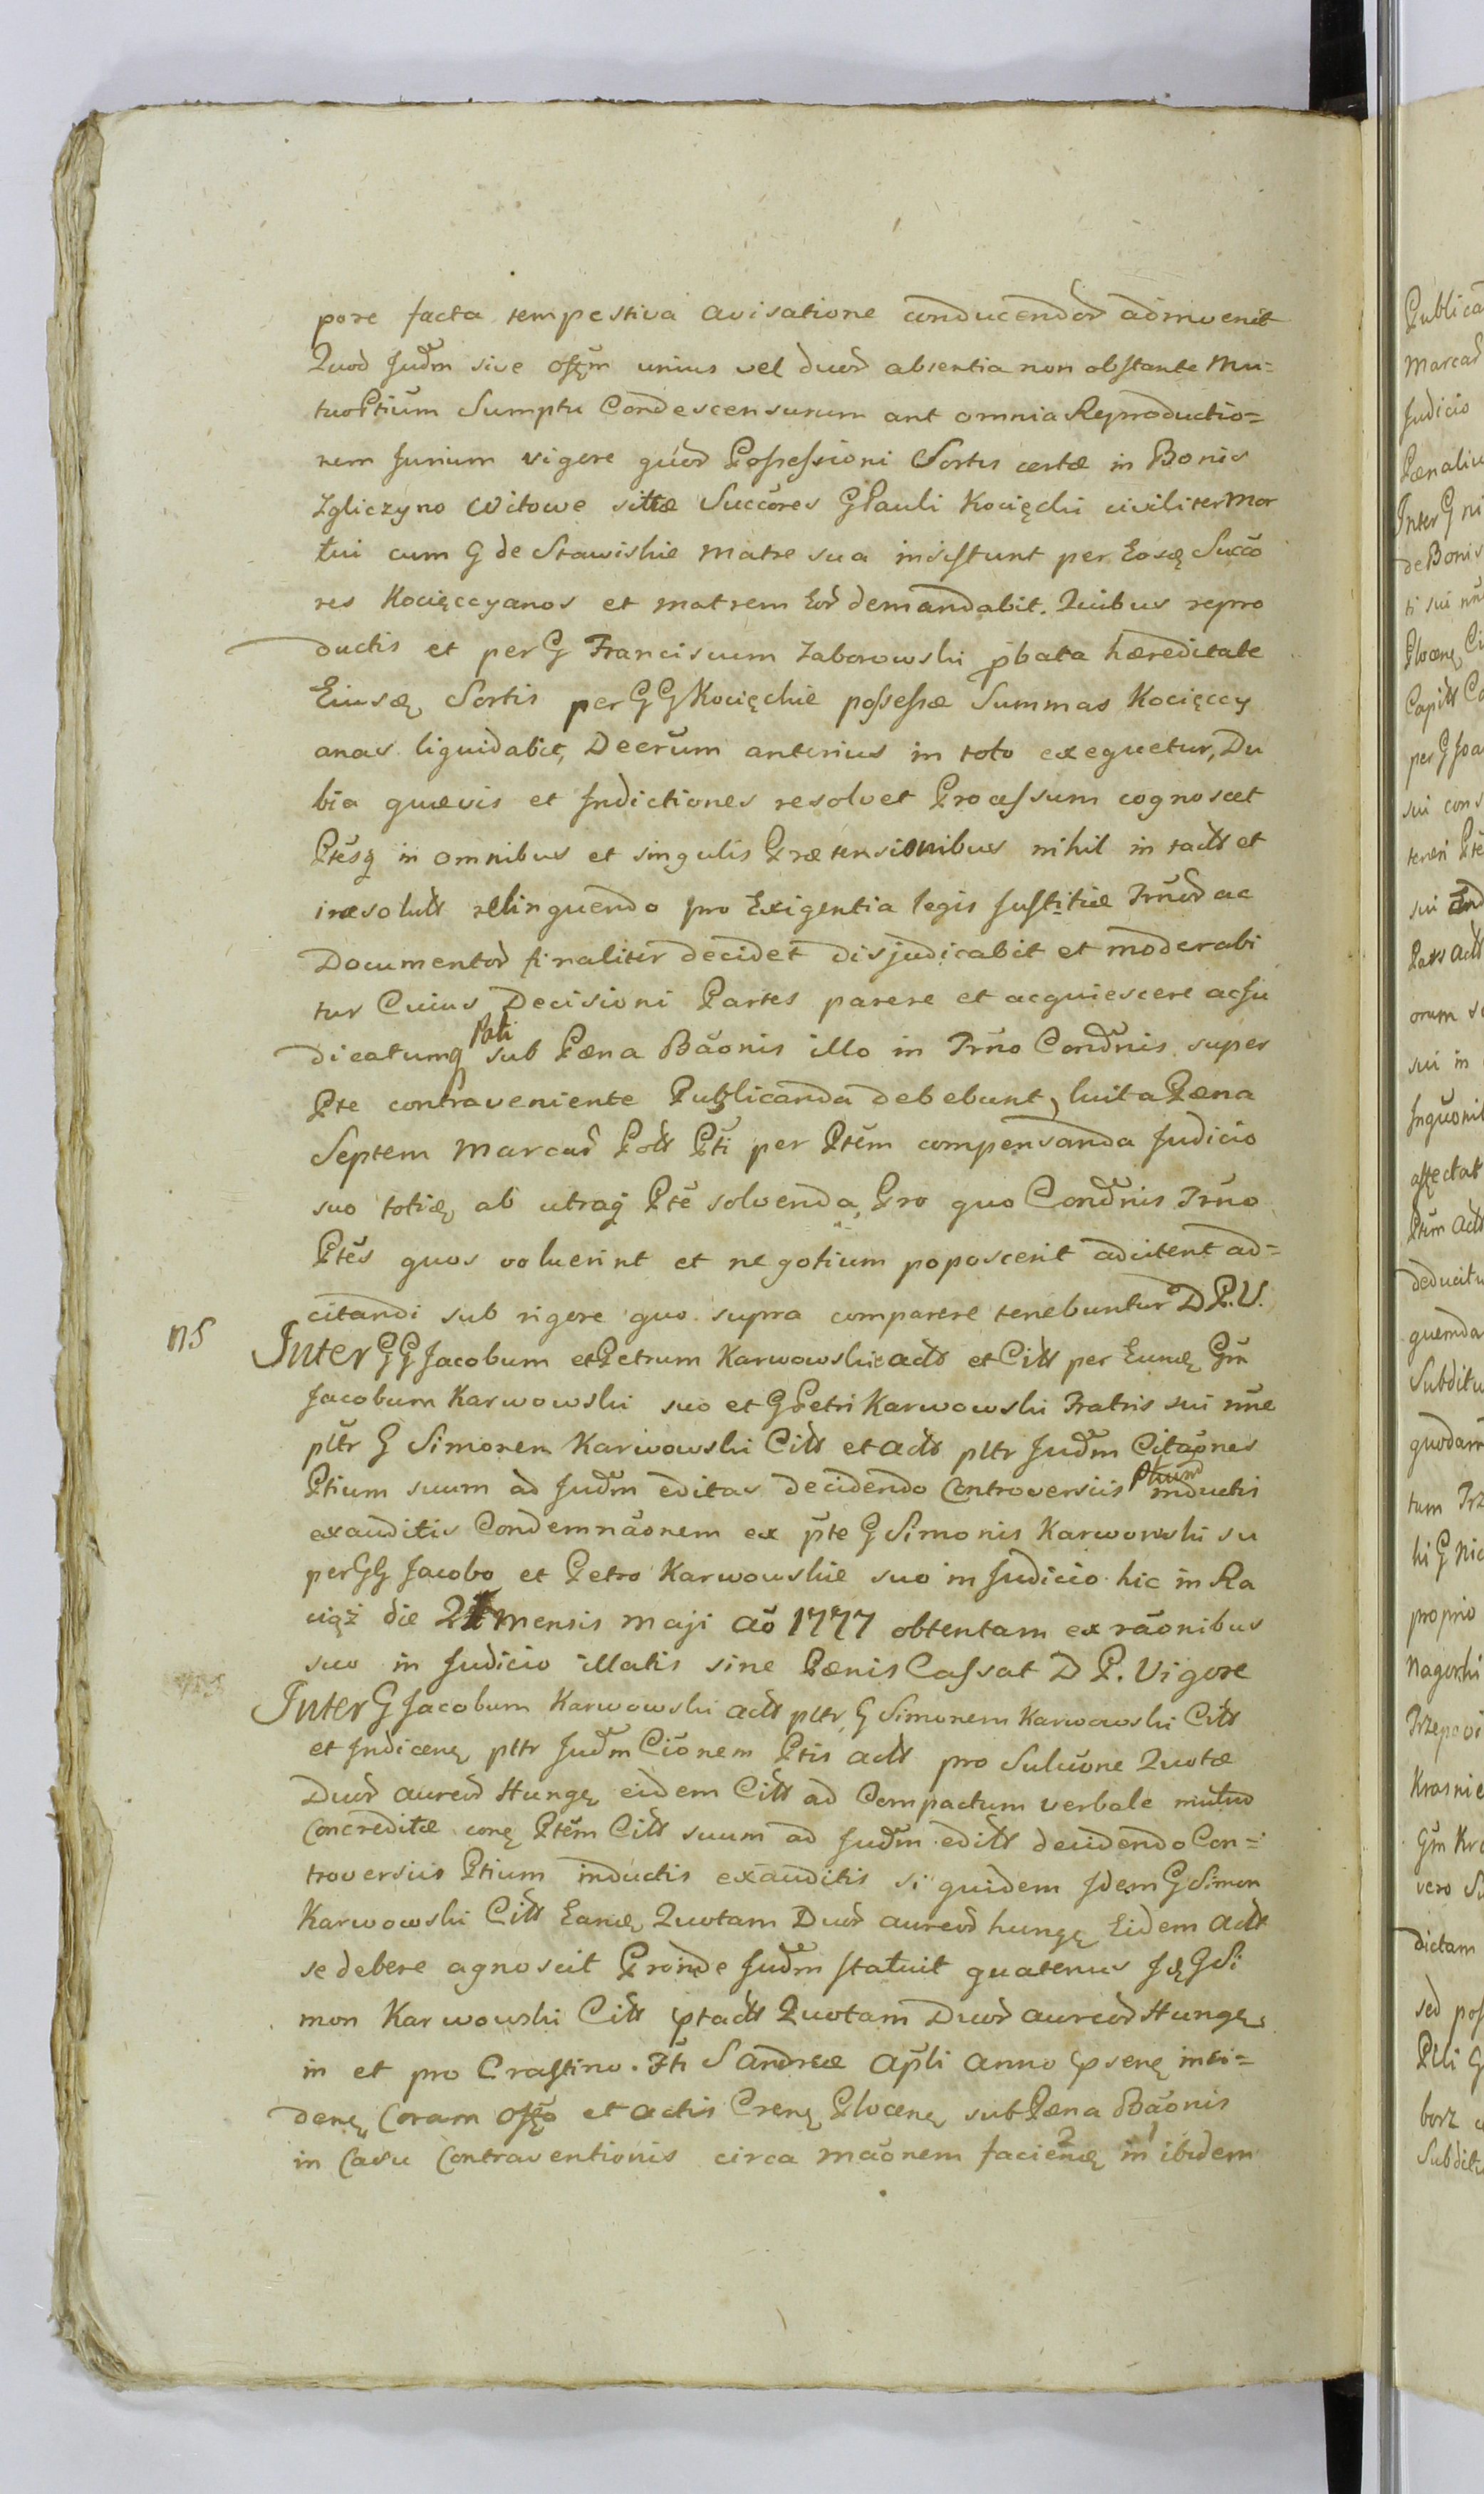 pore facta tempestiva avisatione conducendor adinvenit
Quod Judm sive offm unius vel duor absentia non obstante Mu=
tuo Ptium Sumptu Condescensurum ant omnia Reproductio=
nem Jurium vigore quor Possessioni Sortis certæ in Bonis
Zgliczyno Witowe sittæ Succores G Pauli Kocięcki civiliter Mor
tui cum G de Stawiskie Matre sua insistunt per Eosę Succo
res Kocięccyanos et matrem Eor demandabit. Quibus repro
ductis et per G Franciscum Zaborowski pbata hæreditate
Eiusę Sortis per GG Kocięckie possessæ Summas Kocięccy
anas liquidabit, Decrum anterius in toto exequetur, Du
bia quævis et Indictiones resolvet Processum cognoscet
Ptesq in omnibus et singulis Prætensionibus nihil in tactt et
iresolutt relinquendo pro Exigentia legis Justitiæ Trnor ac
Documentor finaliter decidet disjudicabit et moderabi
tur Cuius Decisioni Partes parere et acquiescere acju
dicatumq Pati sub Pæna Baonis illo in Trno Condnis super
Pte contraveniente Publicanda debebunt, luita Pæna
Septem Marcar Poltt Pti per Ptem compensanda Judicio
suo totię ab utraq Pte solvenda, Pro quo Condnis Trno
Ptes quos voluerint et negotium poposcerit adcitent ad=
citandi sub rigore quo supra comparere tenebuntur D P. V.
ns
Inter GG Jacobum et Petrum Karwowskie actt et Citt per Eunę Gm
Jacobum Karwowski suo et G Petri Karwowski Fratris sui nne
pltr G Simonem Karwowski Citt et actt pltr Judm Citaones
Ptium suum ad Judm editas decidendo Controversiis Ptium inductis
exauditis Condemnaonem ex pte G Simonis Karwowski su
per GG Jacobo et Petro Karwowskie suo in Judicio hic in Ra
ciąż die 21 mensis maji ao 1777 obtentam ex raonibus
suo in Judicio illatis sine Pænis Cassat D P. Vigore
Inter G Jacobum Karwowski actt pltr G Simonem Karwowski Citt
et Indicenę pltr Judm Cionem Ptis actt pro Soluone Quotæ
Duor aureor Hungę eidem Citt ad Compactum verbale mutuo
Concreditæ conę Ptem Citt suum ad Judm editt decidendo Con=
troversiis Ptium inductis exauditis si quidem Idem G Simon
Karwowski Citt Eanę Quotam Duor aureor hungę Eidem actt
se debere agnoscit Proinde Judm statuit quatenus Ię G Si
mon Karwowski Citt ptactt Quotam Duor aureor Hungę
in et pro Crastino Fti S Andreæ Apli Anno psenę inci=
denę Coram offo et actis Crenę Plocenę sub Pæna Baonis
in Casu Contraventionis circa maonem facienę in ibidem